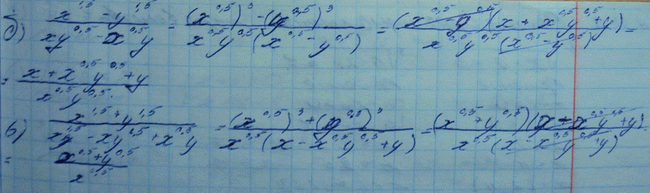 б) (x^{1,5} - y^{1,5})/(xy^{0,5} - x^{0,5}y) = ((x^{0,5})^3 - (y^{0,5})^3)/(x^{0,5}y^{0,5}(x^{0,5} - y^{0,5})) = ((x^{0,5} - y^{0,5})(x + x^{0,5}y^{0,5} + y))/(x^{0,5}y^{0,5}(x^{0,5} - y^{0,5})) =
= (x + x^{0,5}y^{0,5} + y)/(x^{0,5}y^{0,5})
в) (x^{1,5} + y^{1,5})/(x^{1,5} - xy^{0,5} + x^{0,5}y) = ((x^{0,5})^3 + (y^{0,5})^3)/(x^{0,5}(x - x^{0,5}y^{0,5} + y)) = ((x^{0,5} + y^{0,5})(x - x^{0,5}y^{0,5} + y))/(x^{0,5}(x - x^{0,5}y^{0,5} + y))
= (x^{0,5} + y^{0,5})/x^{0,5}